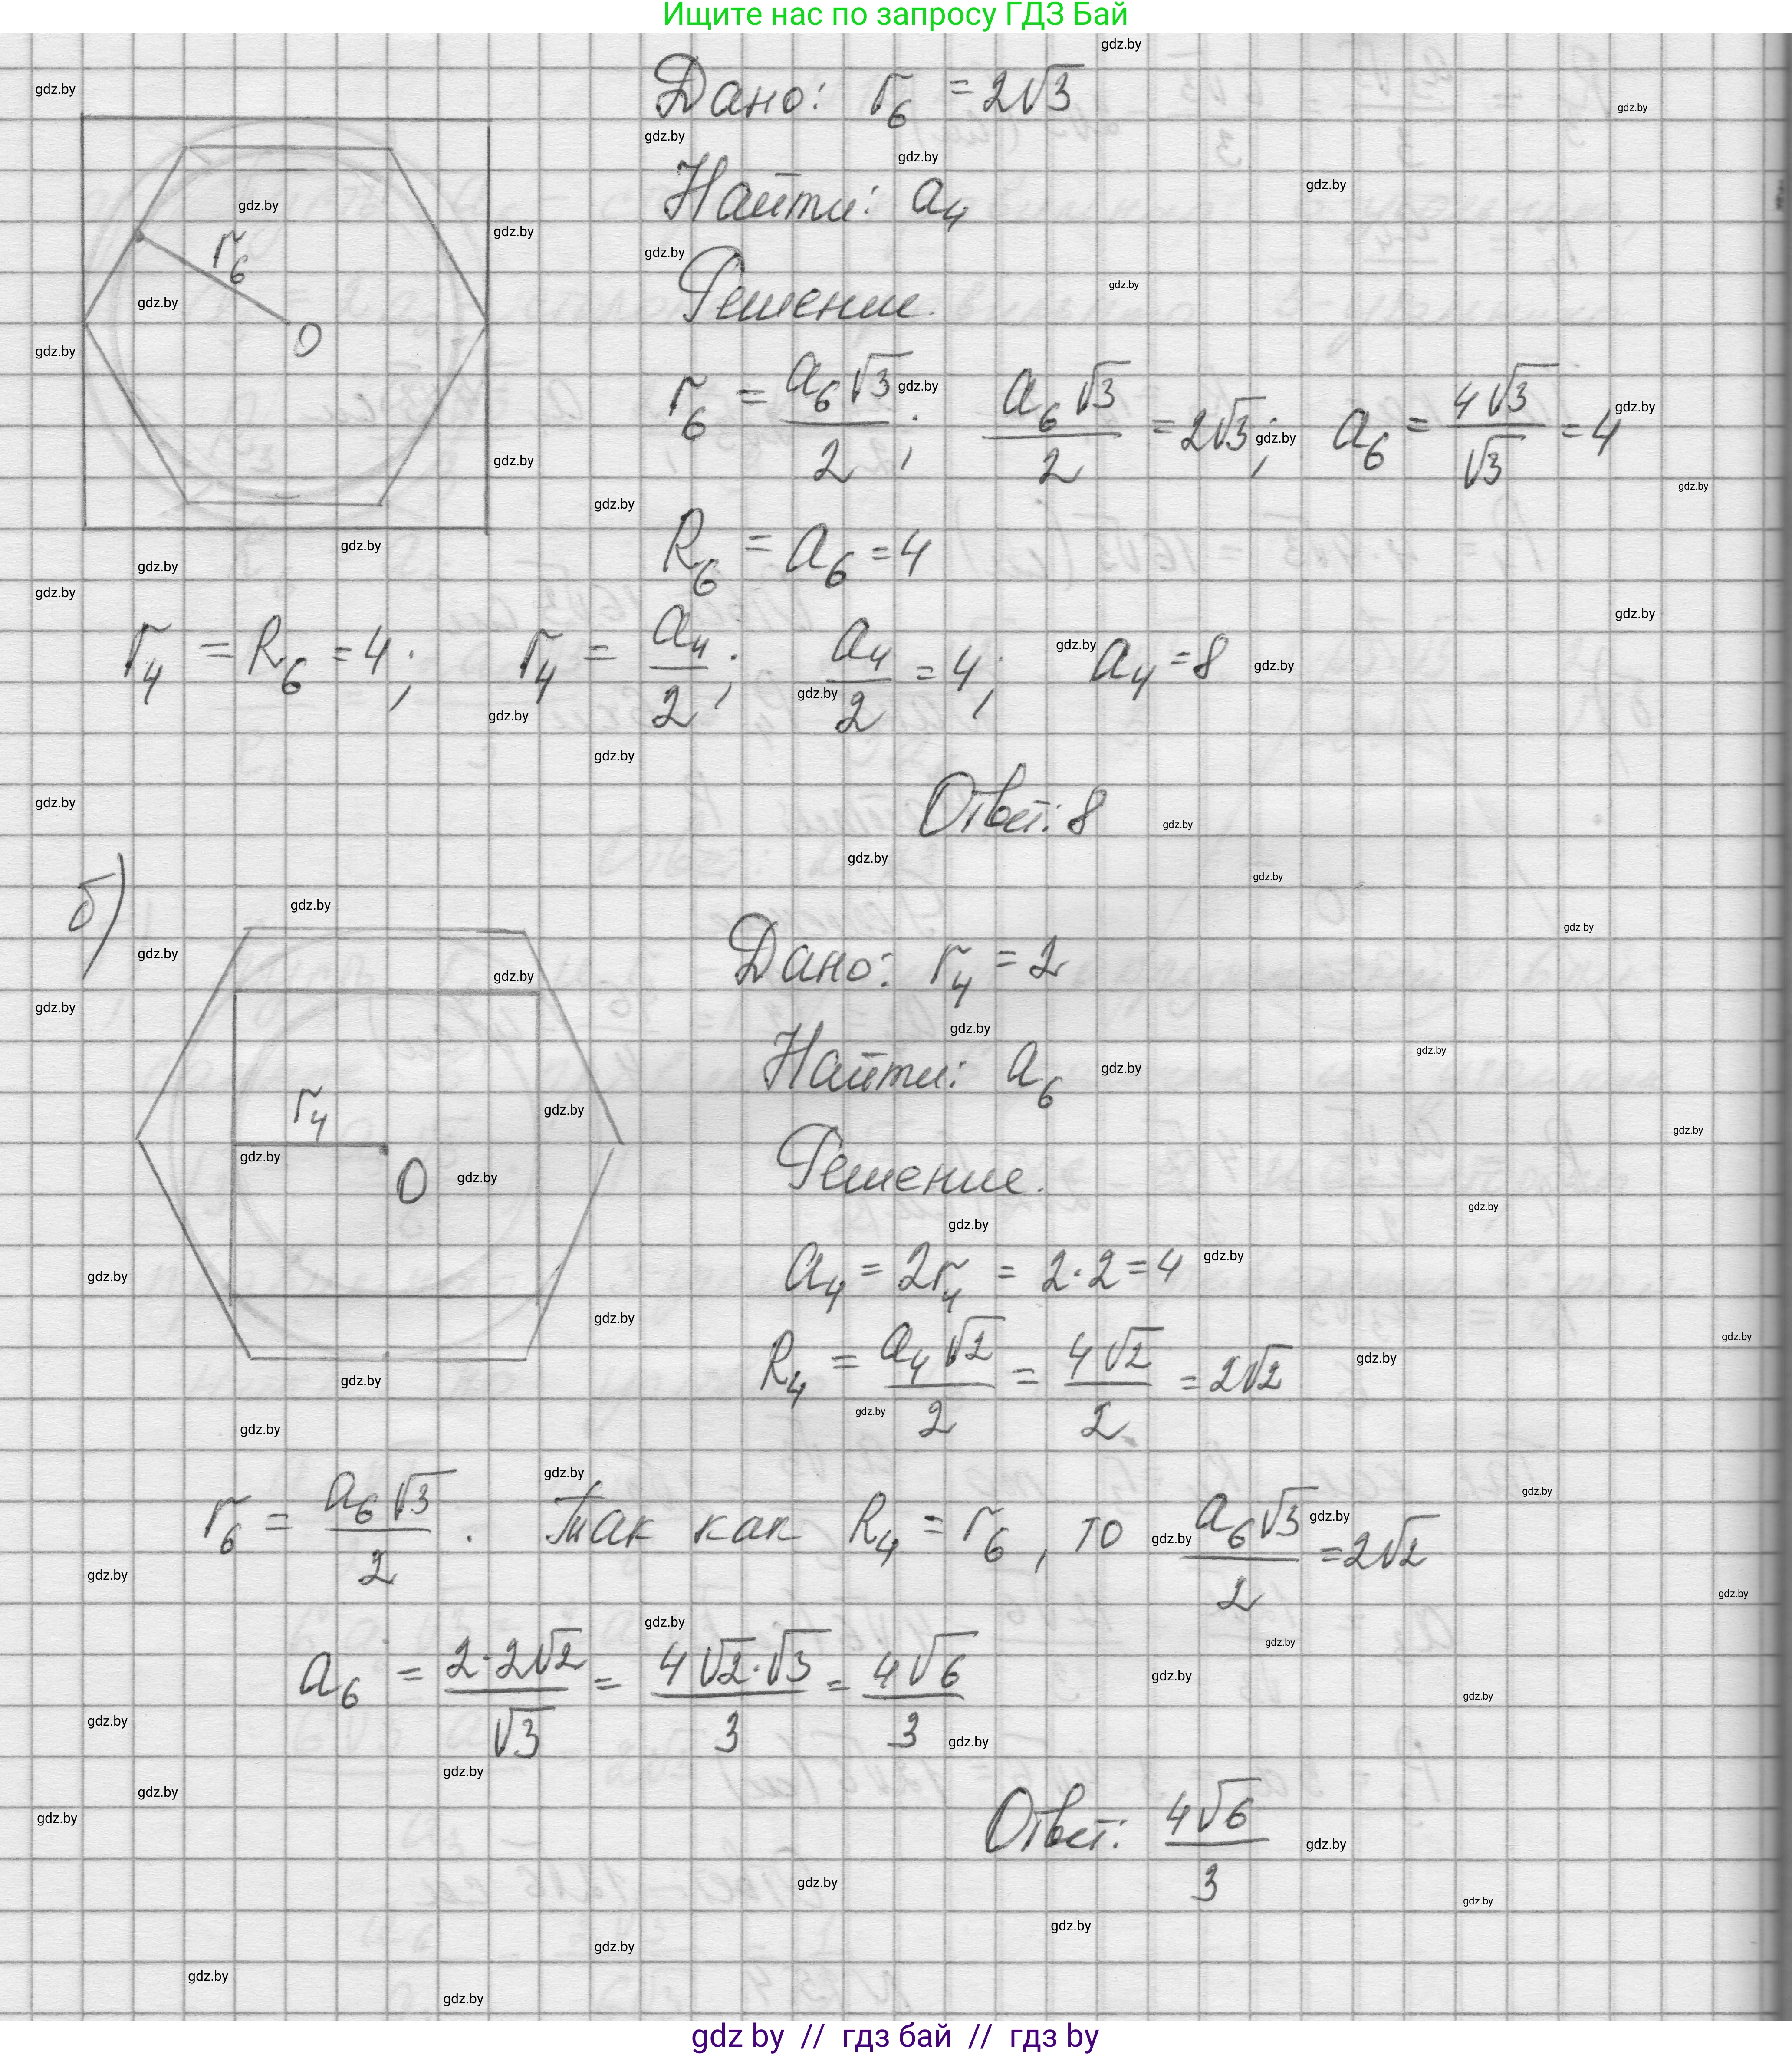 Ищите нас по запросу ГДЗ Бай
Дано: r₆ = 2√3
Найти: a₄
Решение.
r₆
O
r₆ = a₆√3/2; a₆√3/2 = 2√3; a₆ = 4√3/√3 = 4
R₆ = a₆ = 4
r₄ = R₆ = 4; r₄ = a₄/2; a₄/2 = 4; a₄ = 8
Ответ: 8
б)
Дано: r₄ = 2
Найти: a₆
r₄
O
Решение.
a₄ = 2r₄ = 2·2 = 4
R₄ = a₄√2/2 = 4√2/2 = 2√2
r₆ = a₆√3/2. Так как R₄ = r₆, то a₆√3/2 = 2√2
a₆ = 2·2√2/√3 = 4√2·√3/3 = 4√6/3
Ответ: 4√6/3
gdz by // гдз бай // гдз by